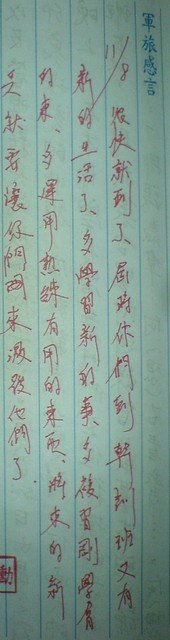 軍旅感言
11/8 很快就到了、屆時你們到幹訓班又有
新的生活了、多學習新的事、多複習剛學
的東、多運用熟練有用的東西、將來的新
兵就要讓你們兩來激發他們了.
動